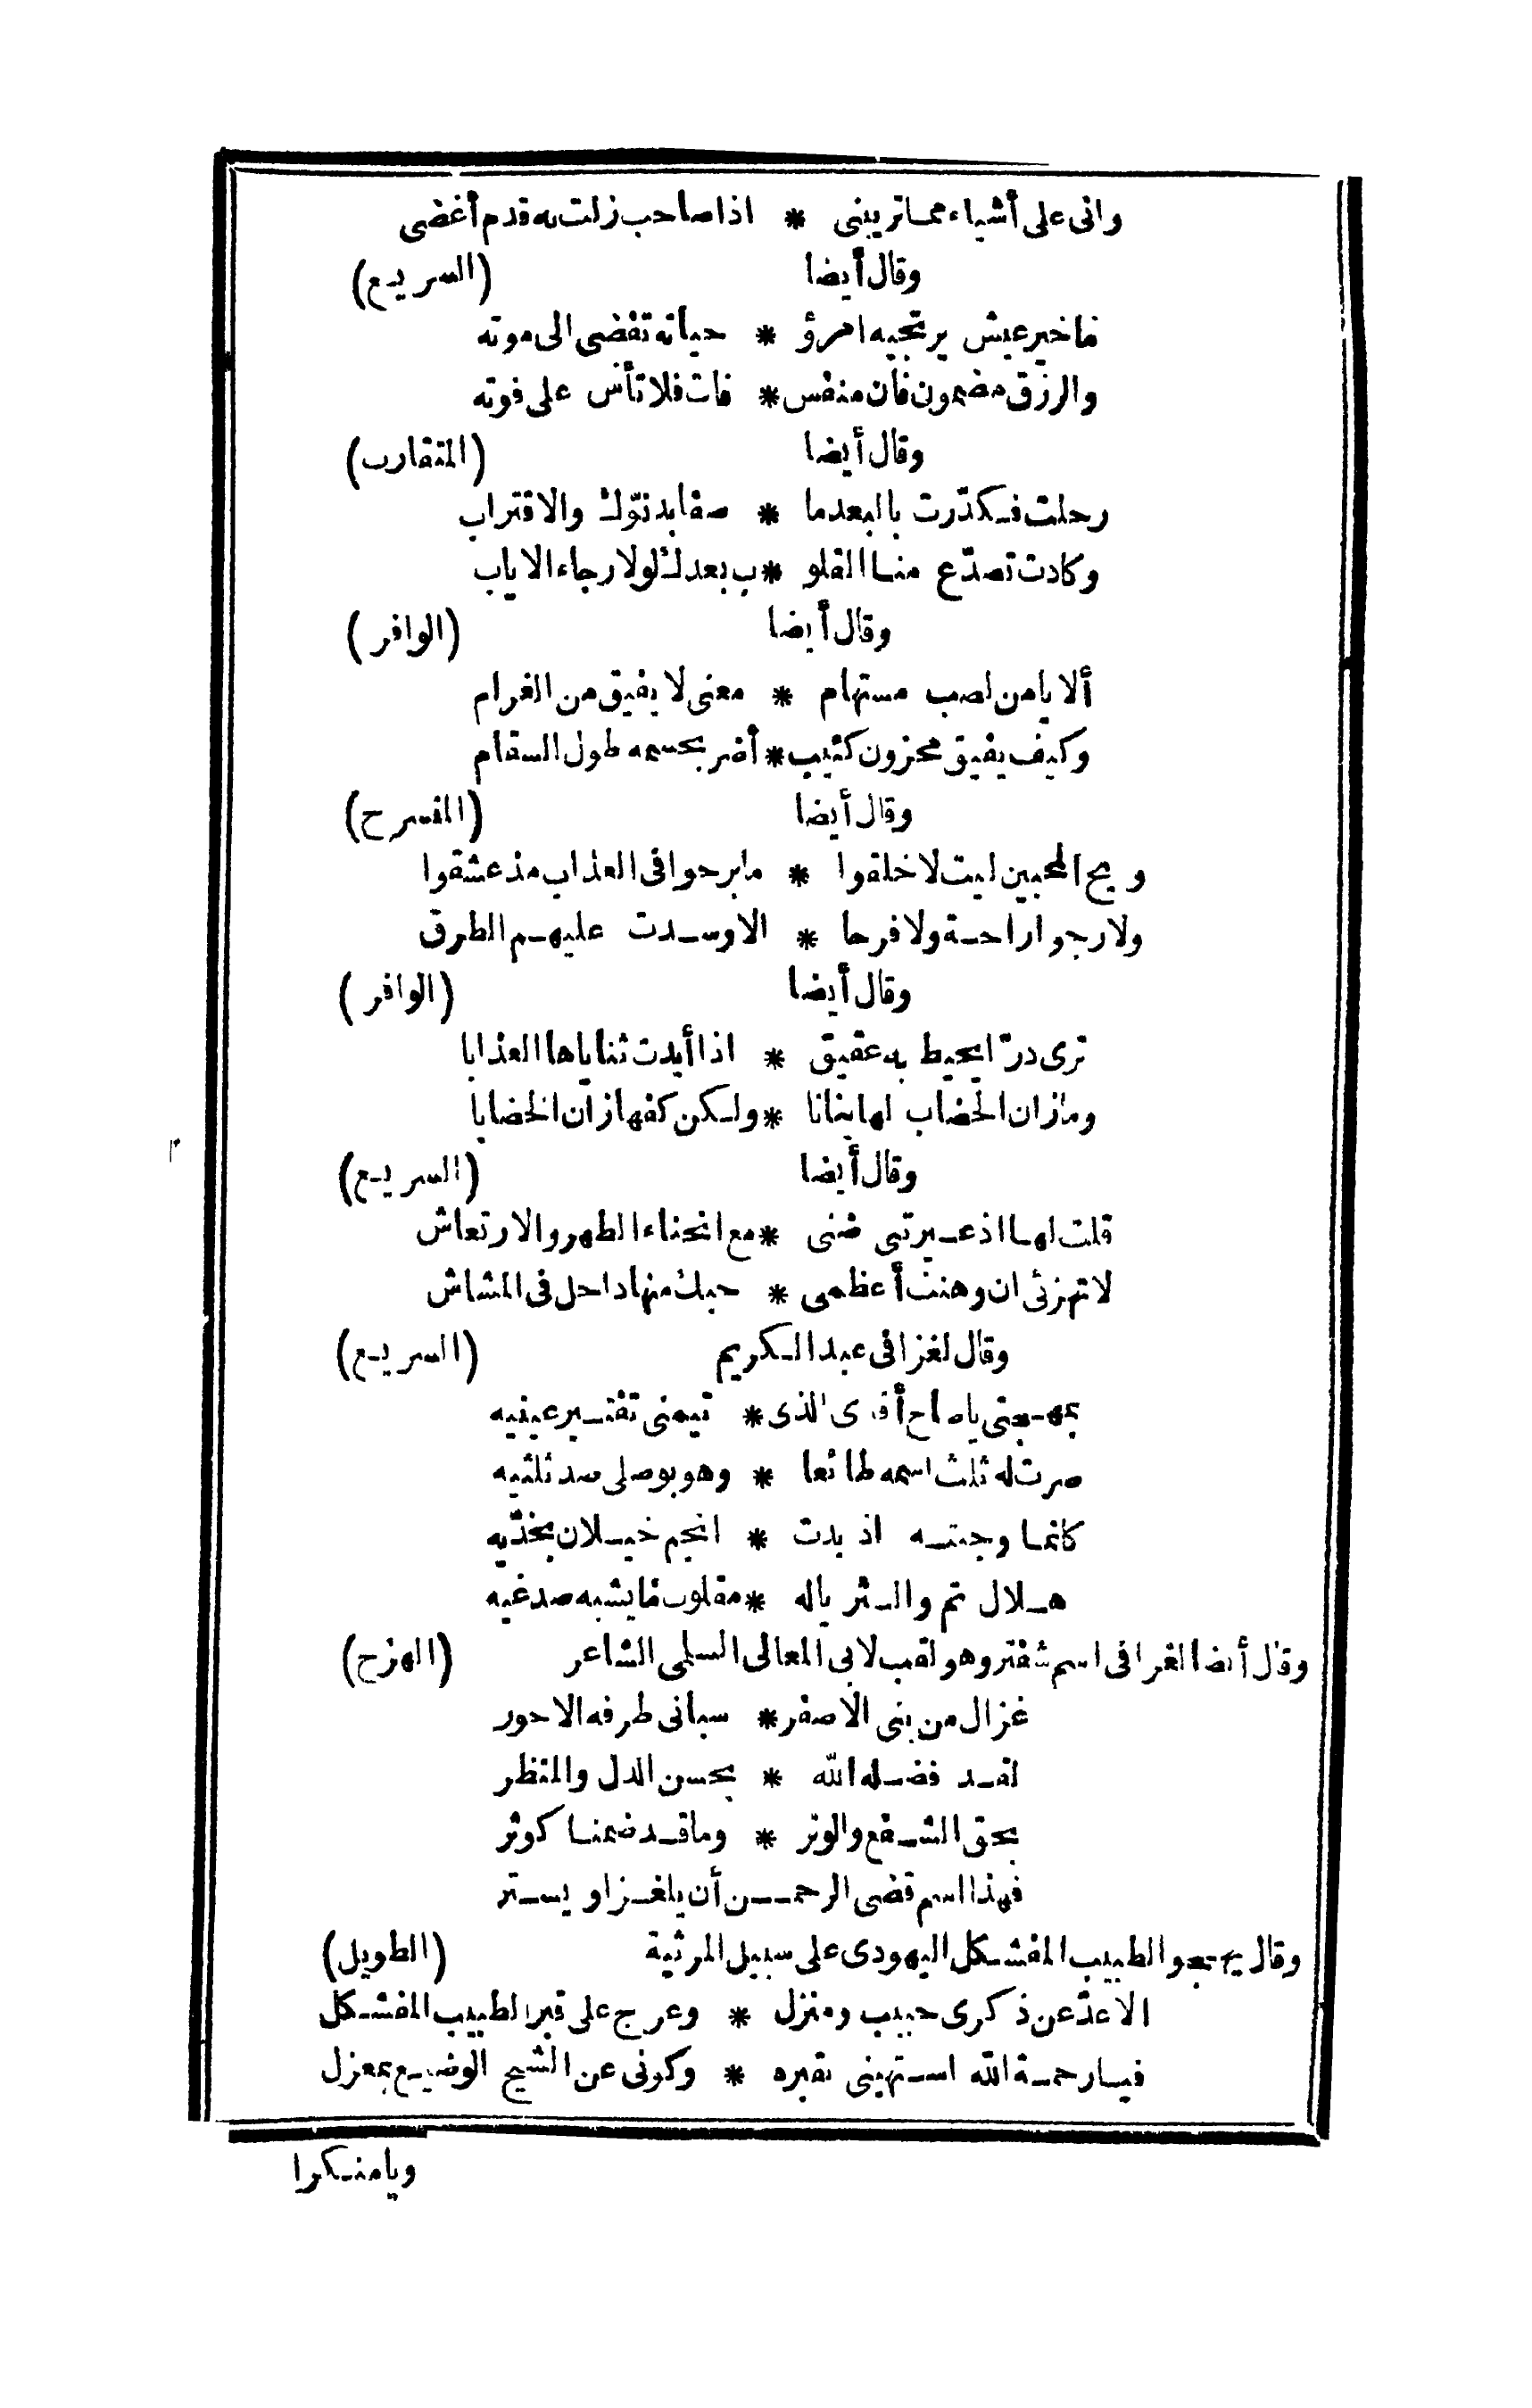 وانى على أشياء مما تريبنى * اذا صاحب زلت به قدم أغضى
وقال أيضا (السريع)
ما خير عيش يرتجيه امرؤ * حياته تفضى الى موته
والرزق مضمون فان منفس * فات فلا تأس على فوته
وقال أيضا (المتقارب)
رحلت فكدّرت بالبعد ما * صفا بدنوّك والاقتراب
وكادت تصدّع منا القلو * ب بعدك لولا رجاء الاياب
وقال أيضا (الوافر)
ألا يا من لصب مستهام * معنى لا يفيق من الغرام
وكيف يفيق محزون كئيب * أضر بجسمه طول السقام
وقال أيضا (المنسرح)
ويح المحبين ليت لا خلقوا * ما برحوا فى العذاب مذ عشقوا
ولا رجوا راحة ولا فرحا * الا وسدت عليهم الطرق
وقال أيضا (الوافر)
ترى درّا يحيط به عقيق * اذا أبدت ثناياها العذابا
وما زان الخضاب لها بنانا * ولكن كفها زان الخضابا
وقال أيضا (السريع)
قلت لها اذ عيرتنى ضنى * مع انحناء الظهر والارتعاش
لا تهزئى ان وهنت أعظمى * حبك منها داحل فى المشاش
وقال لغزا فى عبد الكريم (السريع)
بمهجتى يا صاح أفدى الذى * تيمنى تفتير عينيه
صرت له ثلث اسمه طائعا * وهو بوصلى ضد ثلثيه
كانما وجنته اذ بدت * انجم خيلان بخدّيه
هلال تم والثريا له * مقلوب ما يشبه صدغيه
وقال أيضا لغزا فى اسم شفتر وهو لقب لابى المعالى السلمى الشاعر (الهزج)
غزال من بنى الاصفر * سبانى طرفه الاحور
لقد فضله الله * بحسن الدل والمنظر
بحق الشفع والوتر * وما قد ضمنا كوثر
فهذا اسم قضى الرحمن أن يلغز او يستر
وقال يهجو الطبيب المفشكل اليهودى على سبيل المرثية (الطويل)
الا عدّ عن ذكرى حبيب ومنزل * وعرج على قبر الطبيب المفشكل
فيا رحمة الله استهينى بقبره * وكونى عن الشيخ الوضيع بمعزل
ويا منكرا